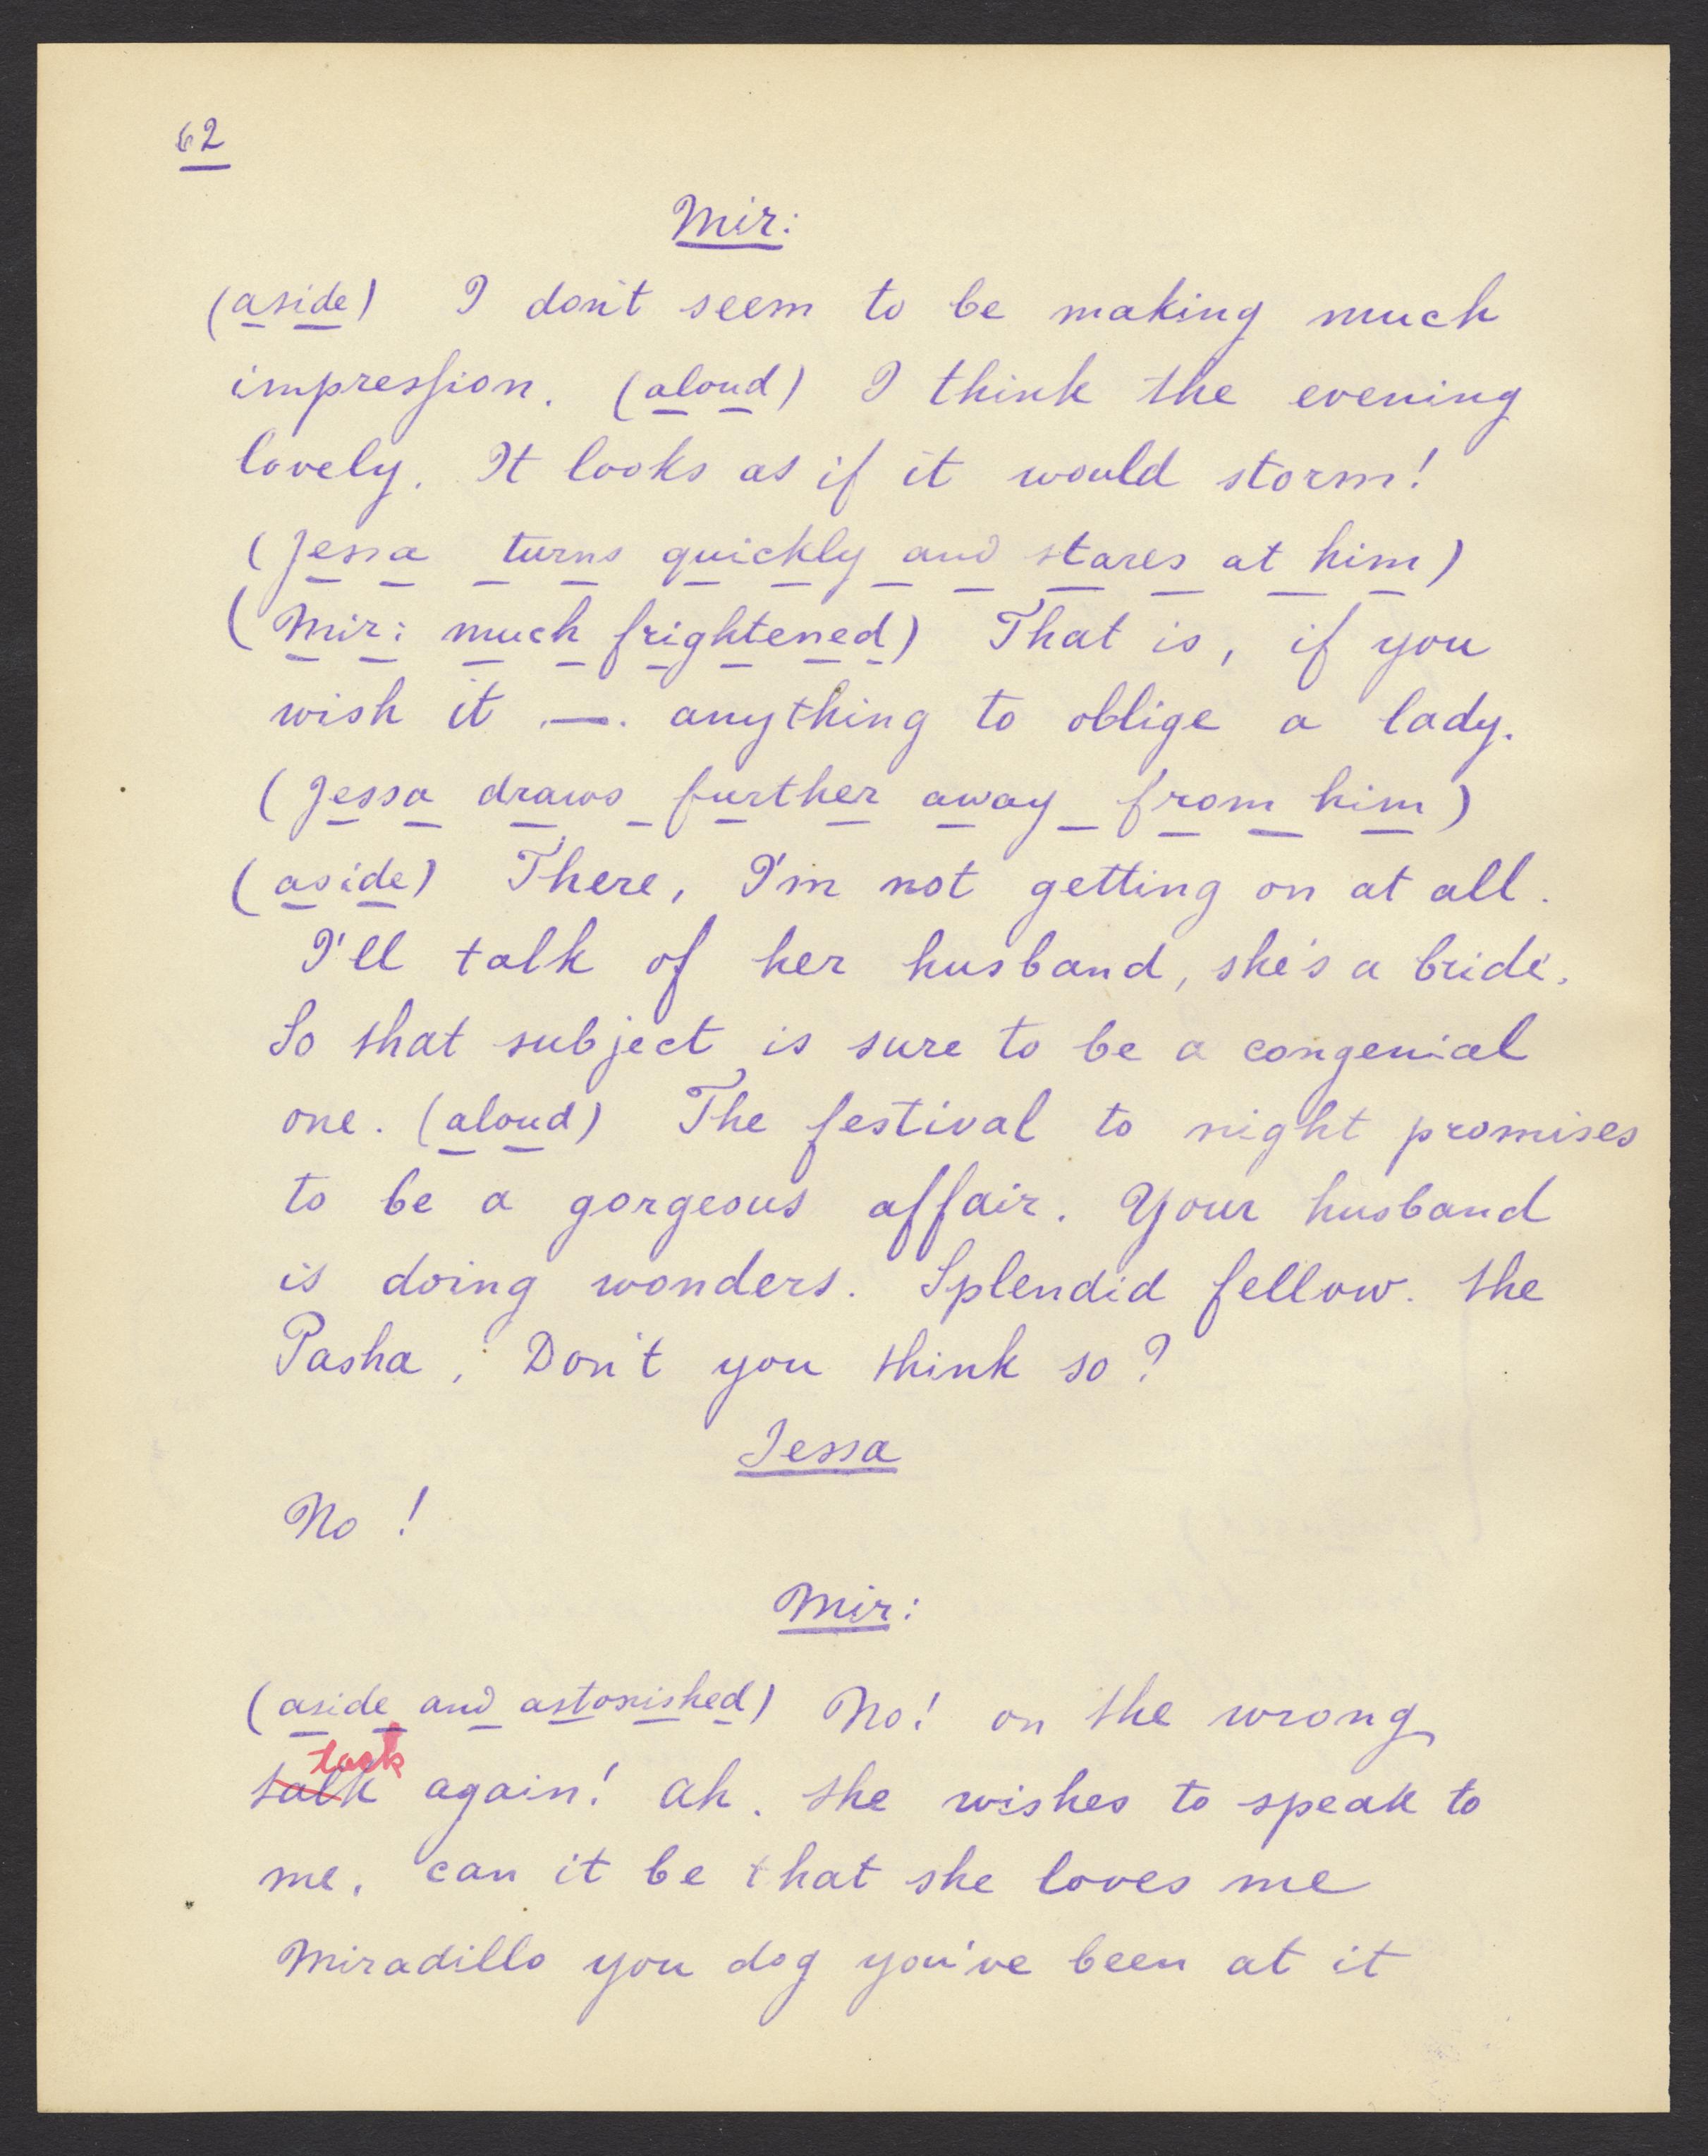 62
Mir:
(aside) I don't seem to be making much
impression. (aloud) I think the evening
lovely. It looks as if it would storm!
(Jessa turns quickly and stares at him)
(Mir: much frightened) That is, if you
wish it —. anything to oblige a lady.
(Jessa draws further away from him)
(aside) There, I'm not getting on at all.
I'll talk of her husband, she's a bride.
So that subject is sure to be a congenial
one. (aloud) The festival to night promises
to be a gorgeous affair. Your husband
is doing wonders. Splendid fellow. the
Pasha, Don't you think so?
Jessa
No!
Mir:
(aside and astonished) No! on the wrong
tack
talk again! Ah. she wishes to speak to
me, can it be that she loves me
Miradillo you dog you've been at it